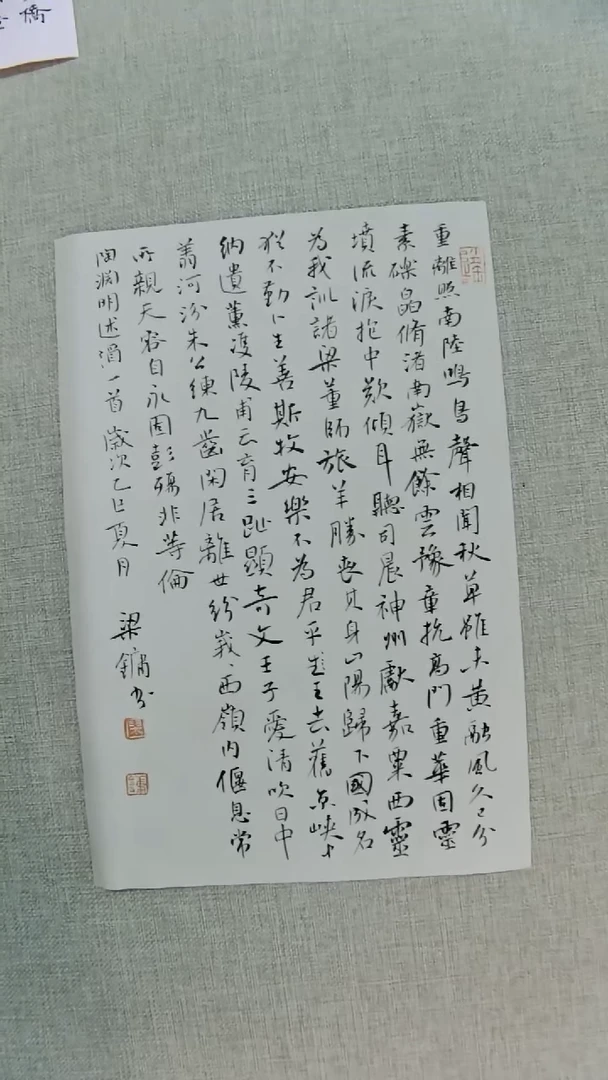 重離照南陸鳴鳥聲相聞秋草雖未黃融風久已分
素礫皛脩渚南嶽無餘雲豫章抗高門重華固靈
墳流淚抱中歎傾耳聽司晨神州獻嘉粟西靈
為我訓諸梁董師旅羊勝喪其身山陽歸下國成名
猶不勤卜生善斯牧安樂不為君平王去舊京峽中
納遺薰雙陵甫云育三趾顯奇文王子愛清吹日中
翔河汾朱公練九齒閑居離世紛峩々西嶺內偃息常
所親天容自永固彭殤非等倫
陶淵明述酒一首歲次乙巳夏月 梁鏞书
僑